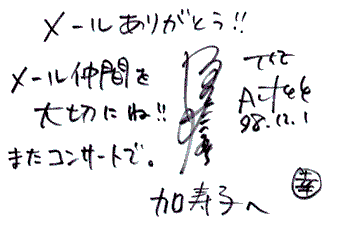 メールありがとう!!
メール仲間を
大切にね!!
またコンサートで。
98.12.1
加寿子へ
幸